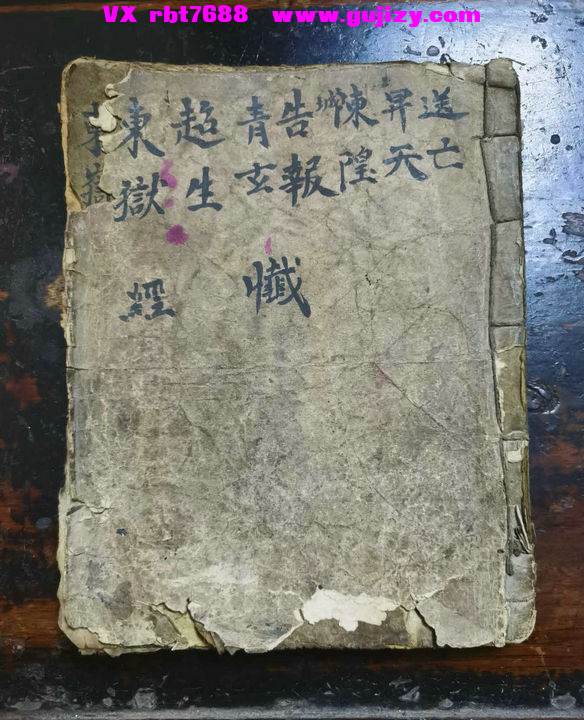 VX rbt7688 www.gujizy.com
送亡
昇天
陳隍
城
告報
青玄
懺
超生
東獄
經
東嶽